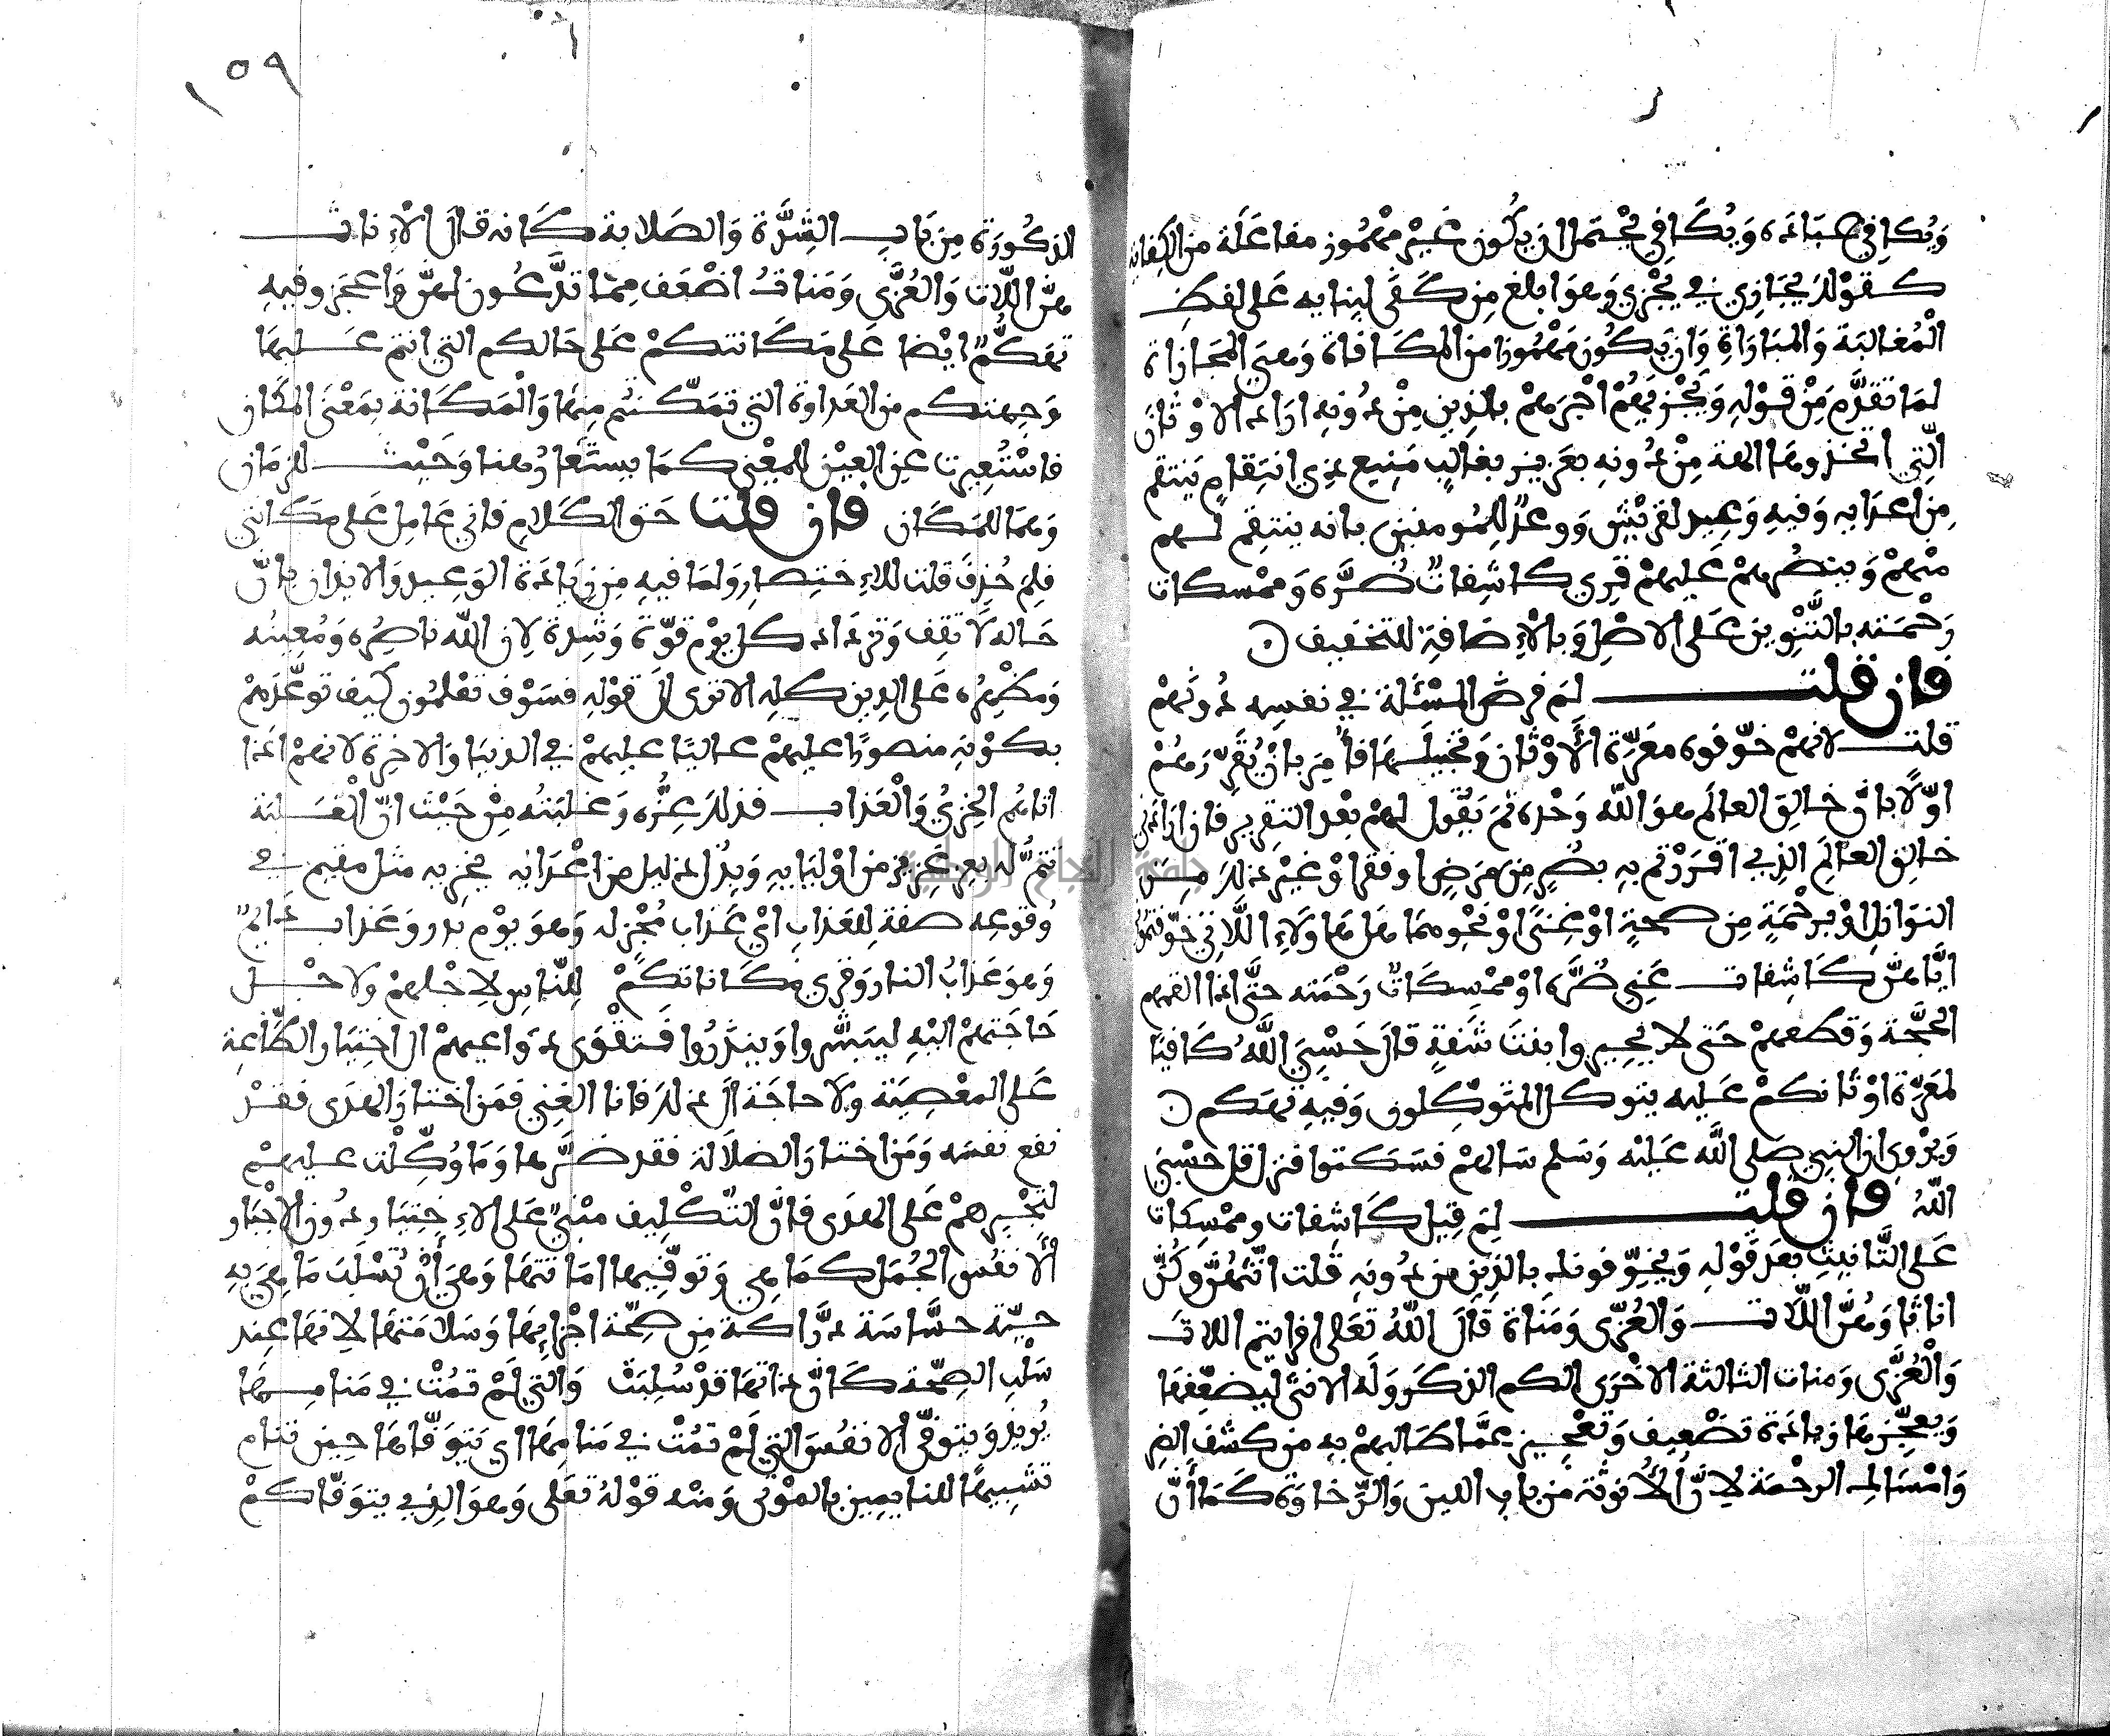 وَيُكافِي عبَادَه وَيُكَافِي يحْتمَل ان يكُون غَيْر مهْمُوز مفاعَلَة من الكِفاية
كقوْلك يجَازِي في يجْزِي وَهوَ ابلغ مِن كَفَى لبِنايه عَلى لفظِ
الْمُغالبَة وَالمبَارَاةِ وَان يكُون مَهْمُوزا من المكَافاة وَهيَ المجَازاة
لمَا تقدَّم مِنْ قوْلِهِ وَيجْزِيَهُمْ اجْرَهمْ بالذِين مِنْ دُونِه ارَادَ الاوْثَانَ
التِي اتخذوهَا الهة مِنْ دُونِه بعَزِيز بغالِبٍ مَنِيع ذِي انتِقامٍ يَنتقم
مِن اعدَايه وَفيهِ وَعِيد لقرَيْشٍ وَوعدٌ لِلمُومنين بانه ينتقِم لهم
منْهمْ وَينصُرهمْ عَليهمْ قرِي كاشِفاتٌ ضُرَّه وَممْسكات
رَحْمَته بالتَّنْوِين عَلى الاصْلِ وَبالاِضَافةِ للتخفيف
فان قلت لمَ فرضَ المسْئَلة في نفسِه دُونَهمْ
قلت لانهمْ خوّفوه معَرَّة الأَوْثان وَتخبيلَهَا فأُمِرَ بانْ يُقَرِّرَهمْ
اوّلًا بانَّ خالِق العالَم هوَ اللَّه وَحْده ثمَ يَقُول لهمْ بعْد التقرِير فان ارَادَني
خالِق العالَمِ الذِي اقرَرْتم بهِ بضُرٍ مِن مَرَضٍ او فقر اوْ غيْر ذلك مِن
النوَازِل اوْ برَحْمَةٍ مِن صحةٍ اوْ غِنىً اوْ نحْوِهمَا هَل هَاولَاءِ اللاتي خوّفتمُونِي
ايَّاهنَّ كَاشِفات عَنِي ضُرَّه اوْ ممْسِكَاتٌ رَحْمَته حتَّى اذا القمهم
الحُجَّة وَقطعهمْ حَتى لا يحِيروا ببنتَ شَفةٍ قال حَسْبِيَ اللَّهُ كَافيًا
لمَعَرَّة اوْثَانكمْ عَليه يتوكل المتَوَكِلون وَفيهِ تهَكم
وَيرْوى ان النبي صَلى اللَّه عَليْه وَسَلم سَالهمْ فسَكتوا فنزل قل حَسْبِيَ
اللَّهُ فان قلت لِمَ قِيل كَاشِفات وممْسِكات
عَلى التَّانِيث بعدَ قَوْلِهِ وَيخَوِّفونك بالذِينَ مِن دُونِهِ قلت انَّثهُنَّ وَكُنَّ
انَاثا وَهُنَّ اللَّات وَالعُزَّى وَمَناة قال اللَّهُ تعَلى افرايتم اللات
وَالْعُزَّى وَمنات الثالثة الاخْرَى الكم الذكَر وَلَه الانثى ليضعِّفهَا
وَيعجِّزهَا زيادَة تضْعِيف وَتعْجِيز عمَّا طالبهمْ بِهِ من كشْفِ الضرِ
وَامْسَاك الرحْمَة لانَّ الأُنوثة من بابِ اللين وَالرَّخَاوَة كمَا أنَّ
١٥٩
الذكُورَة مِن بَاب الشِدَّة وَالصَلابة كَانه قال الْاِناث
هنَّ اللّات وَالعُزَّى وَمَنات اضْعَف مِمَّا تدَّعُون لهنَّ وَاعجَز وفيهِ
تهَكُّمٌ ايْضا عَلى مَكَانتكمْ عَلى حَالكم التي انتم عَليهَا
وَجِهتكم من العَداوَة التي تمَكّنتُم مِنهَا وَالْمَكَانة بمَعْنى المكَان
فاسْتُعِيرت عَن العيْن للمعْنى كمَا يستَعَار هُنا وَحَيْث للزمَان
وَهمَا للمكَان فان قلت حَق الكلامِ فاني عَامِل عَلى مَكَانتي
فلِمَ حُذِفَ قلت للاِختصارِ وَلمَا فيهِ مِن زِيَادَة الوَعِيد وَالايذان بانَّ
حَاله لا تقِف وَتزدَاد كل يوْم قوّة وَشِدة لِان اللَّه ناصِرُه وَمُعِينُه
وَمظْهِرُه عَلى الدِين كلِهِ الا ترَى الَى قوْلِه فسَوْف تعْلمُون كَيف توعَّدَهمْ
بكَوْنِه منصورًا عليهمْ عاليًا عليهمْ في الدنيَا وَالاخِرَة لانهمْ اذَا
اتاهُم الخِزيُ وَالْعَذاب فذلك عِزُّه وَغلبَتُه مِنْ حَيْث انَّ الْغلَبَة
تتمُّ له بعِزّ عَزِيز من اوْليَايِهِ وَبذُل ذليل من اعْدَايِه يخزِيهِ مثل مقيم في
وُقوعِه صفة لِلعَذابِ ايْ عَذاب مُخْزٍ له وَهوَ يوْم بدر وَعَذاب دَايمٌ
وَهوَ عَذابُ النار وَقرِي مَكَاناتكُمْ لِلنَّاس لاجْلهمْ وَلاجْل
حَاجَتهمْ اليْهِ ليبَشَّروا وَينذَرُوا فَتقْوَى دَوَاعيهمْ الى اختيَار الطَّاعَةِ
عَلى المعْصِيَة وَلا حاجَة الَى ذلك فانا الغَنِي فمَن اختارَ الهدَى فقدْ
نفع نفسَه وَمَن اختارَ الضلالَة فقد ضَرَّهَا وَمَا وُكِّلْت عليهمْ
لتجْبرهمْ عَلى الهدَى فانَّ التَّكْلِيف مبْنيٌّ عَلى الاِخْتِيَار دُون الاجْبَار
الأَنفُس الجُمَل كمَا هِي وَتوَفّيهَا امَاتتهَا وَهِيَ أنْ تُسْلَبَ مَا هِيَ بِهِ
حيَّة حسَّاسَة درَّاكة مِن صِحَّة اجْزائِهَا وَسَلامَتهَا لانهَا عِند
سَلْبِ الصِحَّة كَانَّ ذاتهَا قدْ سُلِبَتْ وَالتِي لَمْ تمُتْ في مَنامِهَا
يُرِيدُ وَيتوفّى الانفُسَ التِي لَمْ تمُتْ في مَنامِهَا اي يَتوَفَّاهَا حِين تنام
تشْبِيهًا للنايمِين بالموْتى وَمنْه قوْلهُ تعَلى وَهوَ الذِي يتوَفّاكمْ